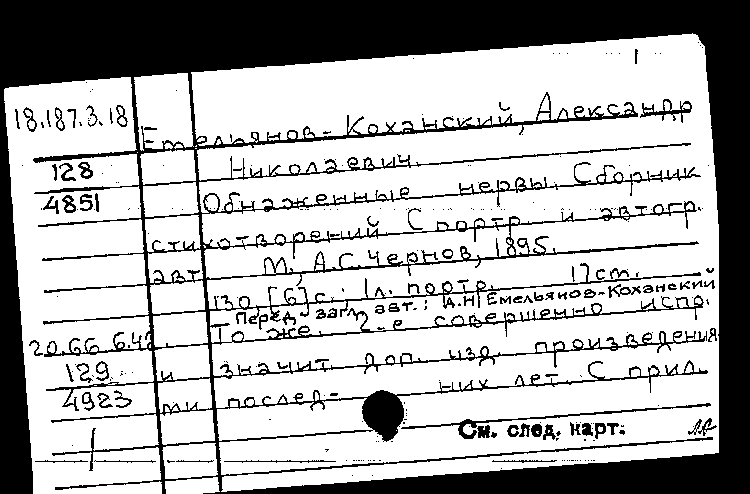 1
18.187.3.18
Емельянов-Коханский, Александр
128 Николаевич.
4851 Обнаженные нервы. Сборник
стихотворений. С портр. и автогр.
авт. М., А.С. Чернов, 1895.
130, [6] с.; 1 л. портр. 17 cm.
Перед загл. авт.: А.Н. Емельянов-Коханский
20.66 6.42. То же. 2-е совершенно испр.
129 и значит. доп. изд. произведения
4923 ми послед- них лет. С прил.
См. след. карт.